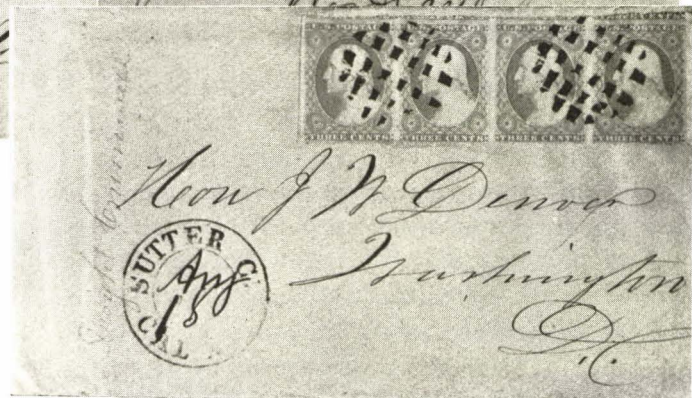 THREE CENTS THREE CENTS THREE CENTS THREE CENTS
Hon J W Denver
Washington
D.C.
SUTTER C
Aug
13
CAL